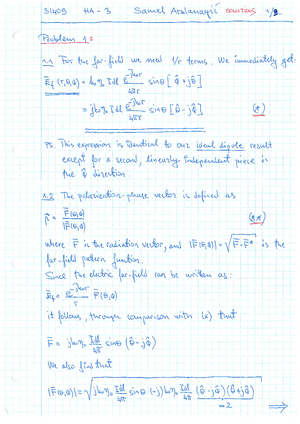 31405 HA-3 Samel Arslanagić SOLUTIONS 1/9
Problem 1:
1.1 For the far-field we need 1/r terms. We immediately get:
Ē_f (r,θ,φ) = k₀η₀ I dl e^{-jk₀r}/4πr sinθ [θ̂ + jφ̂]
= jk₀η₀ I dl e^{-jk₀r}/4πr sinθ [θ̂ - jφ̂] (*)
PS. This expression is identical to our ideal dipole result
except for a second, linearly independent piece in
the φ̂ direction.
1.2 The polarization-phase vector is defined as
p̄ = F̄(θ,φ)/|F̄(θ,φ)| (**)
where F̄ is the radiation vector, and |F̄(θ,φ)| = √(F̄·F̄*) is the
far-field pattern function.
Since the electric far-field can be written as:
Ē_f = e^{-jk₀r}/r F̄(θ,φ)
it follows, through comparison with (*) that
F̄ = jk₀η₀ Idl/4π sinθ (θ̂ - jφ̂)
We also find that
|F̄(θ,φ)| = √(jk₀η₀ Idl/4π sinθ (-j)k₀η₀ Idl/4π (θ̂-jφ̂)(θ̂+jφ̂))
=2 ⟹